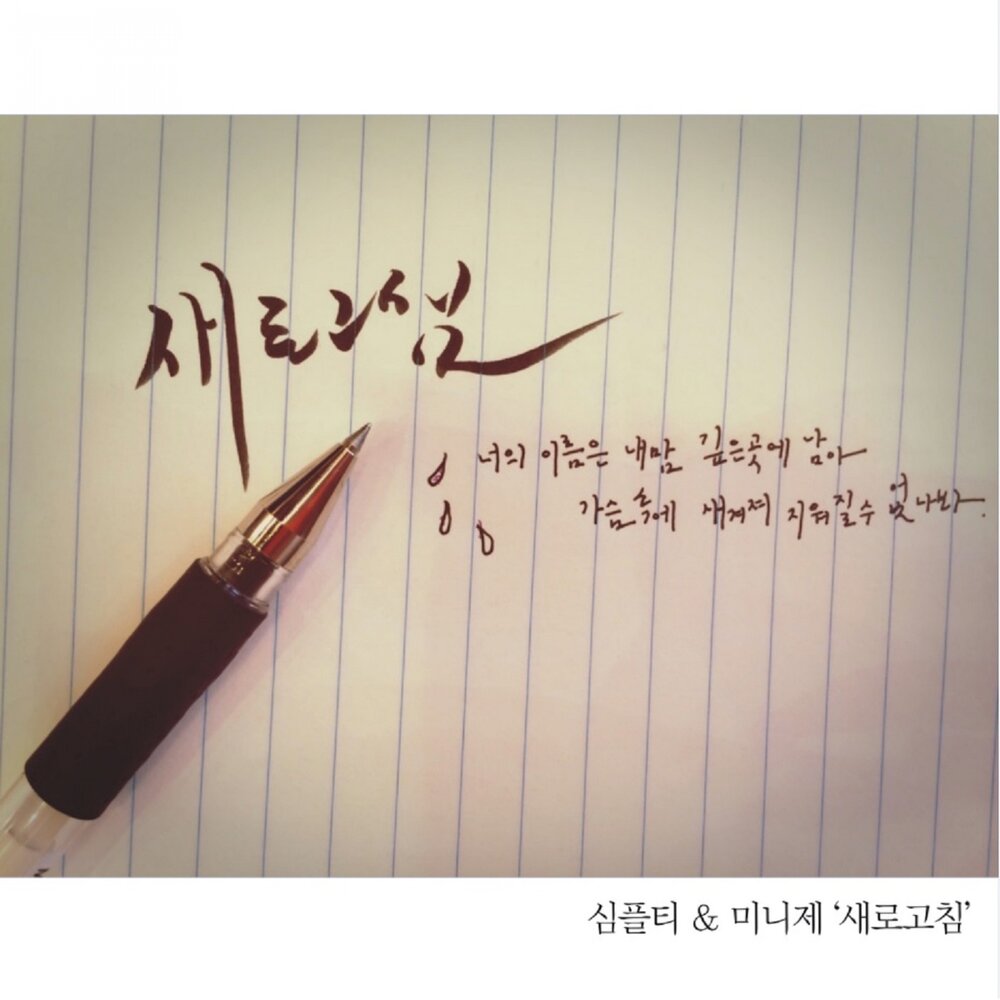 새로고침
너의 이름은 내맘 깊은곳에 남아
가슴속에 새겨져 지워질수 없나봐.
심플티 & 미니제 ‘새로고침’